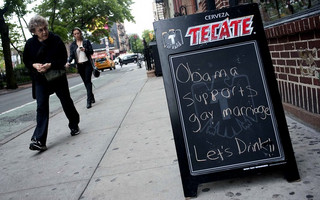 CERVEZA
TECATE
Obama
supports
gay marriage
Let's Drink!!